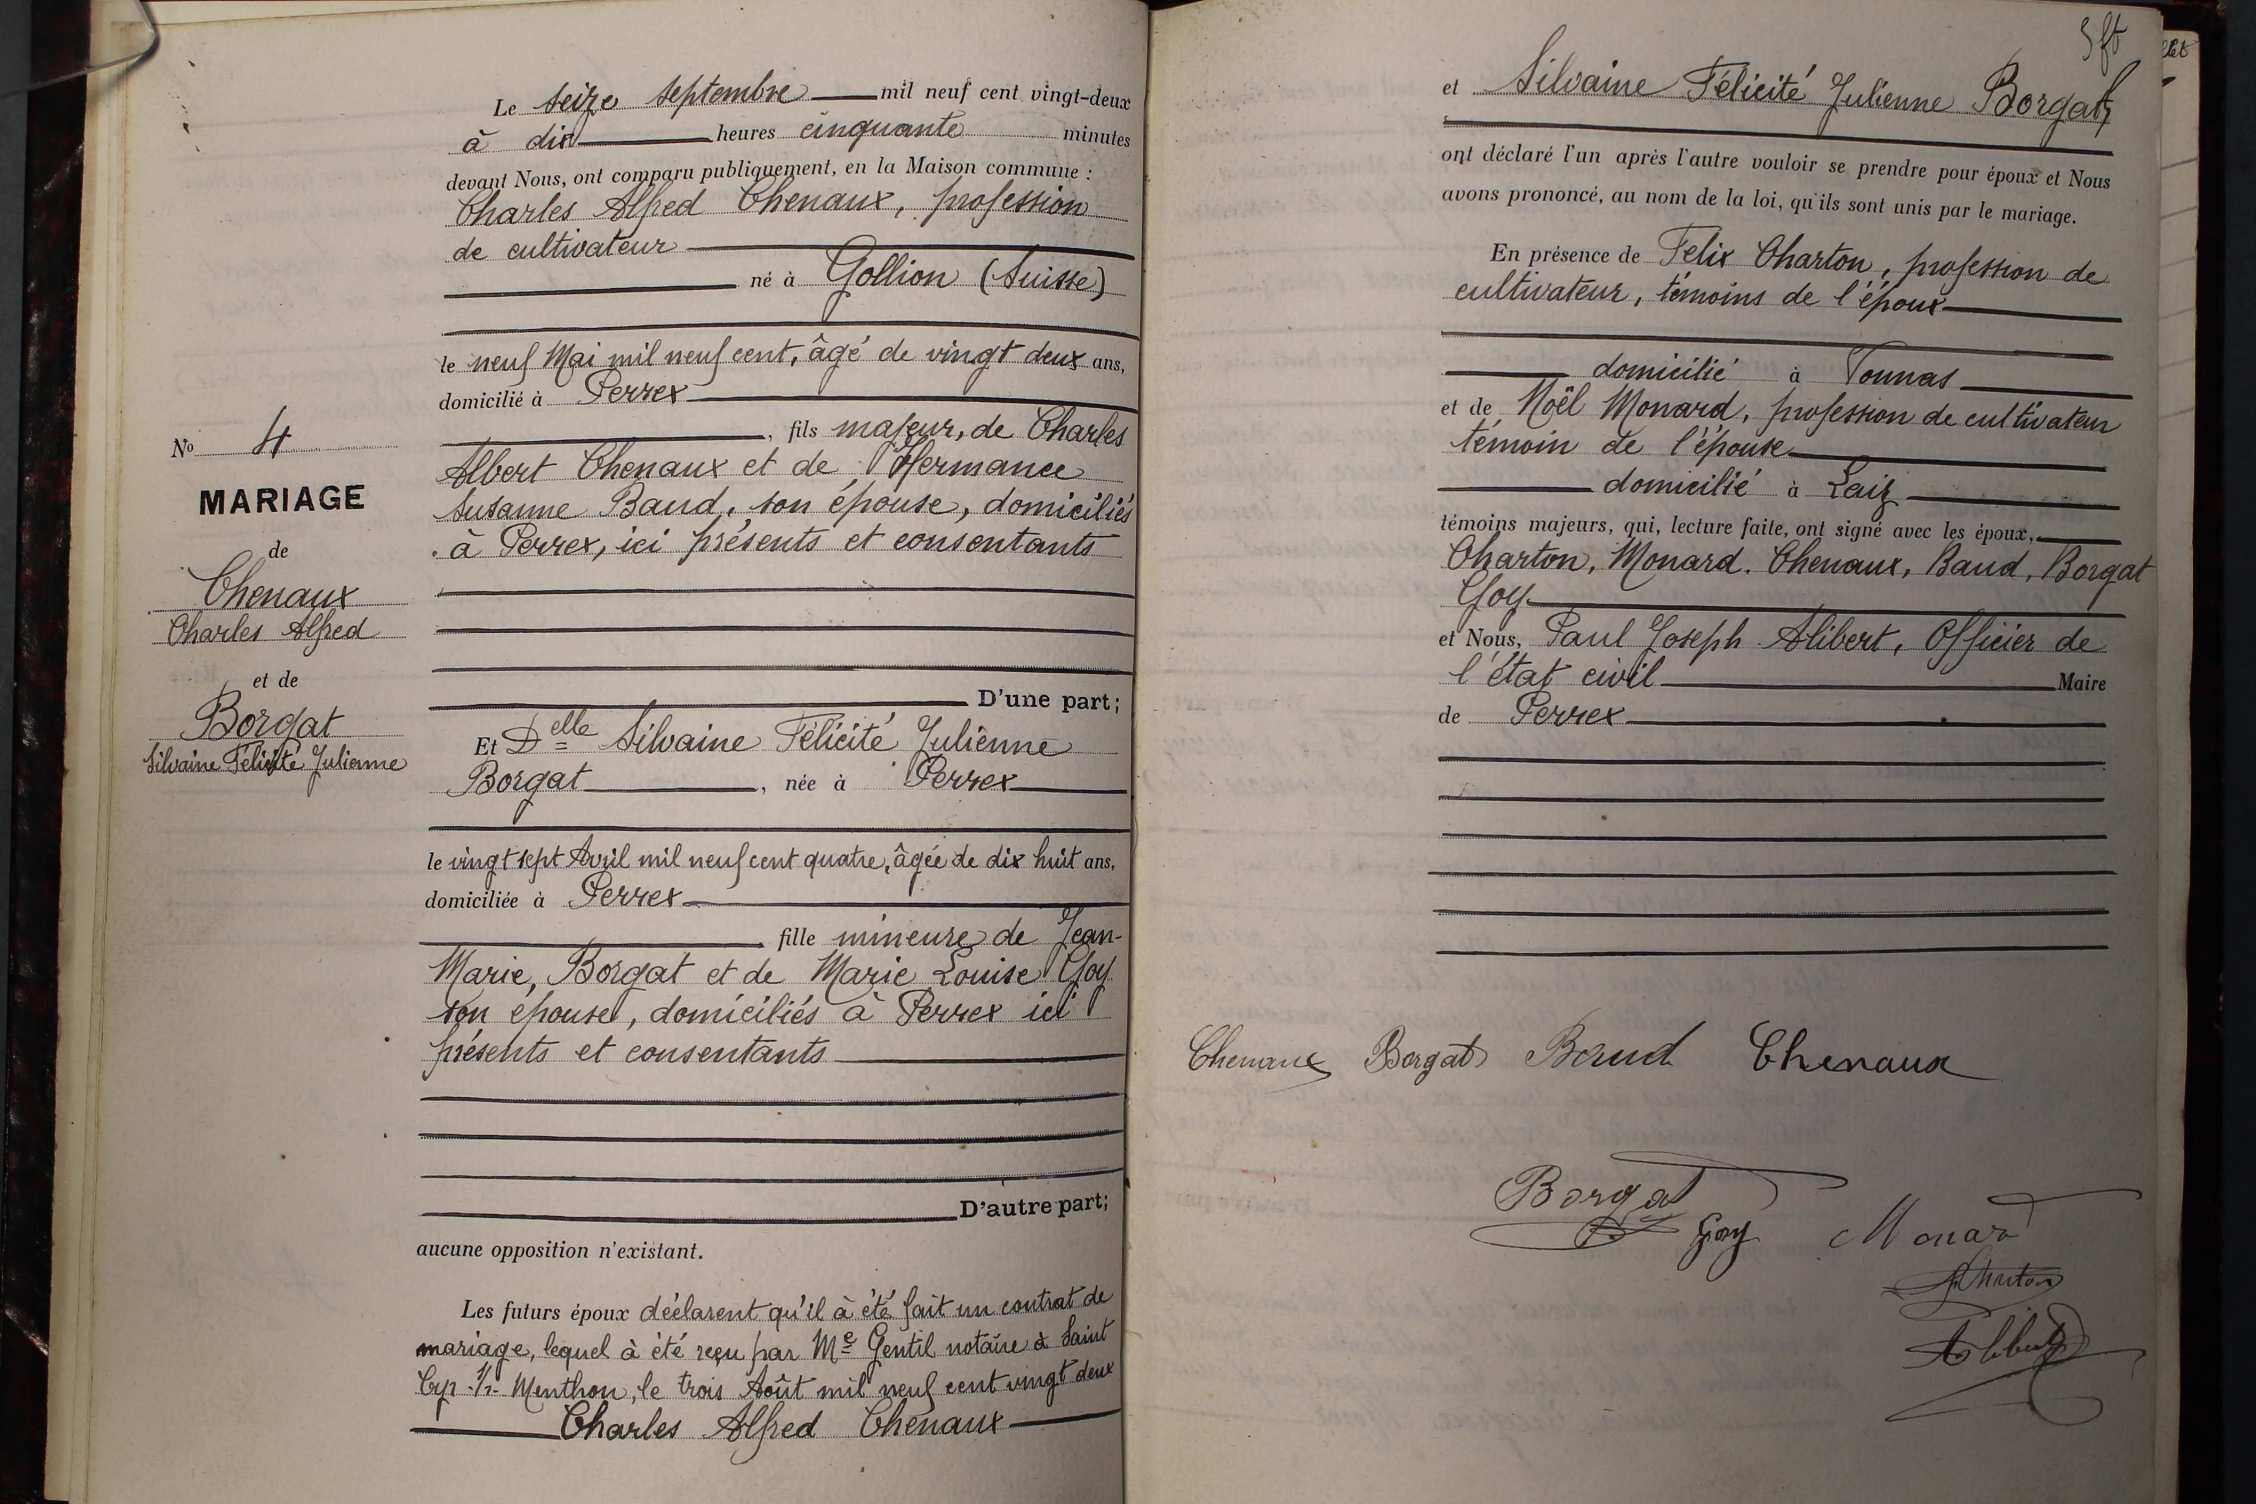 No 4
MARIAGE
de
Chenaux
Charles Alfred
et de
Borgat
Silvaine Félicité Julienne
Le seize septembre mil neuf cent vingt-deux
à dix heures cinquante minutes
devant Nous, ont comparu publiquement, en la Maison commune :
Charles Alfred Chenaux, profession
de cultivateur
né à Gollion (Suisse)
le neuf Mai mil neuf cent, âgé de vingt deux ans,
domicilié à Perrex
, fils majeur, de Charles
Albert Chenaux et de Hermance
Susanne Baud, son épouse, domiciliés
à Perrex, ici présents et consentants
D'une part;
Et Delle Silvaine Félicité Julienne
Borgat, née à Perrex
le vingt sept Avril mil neuf cent quatre, âgée de dix huit ans,
domiciliée à Perrex
fille mineure de Jean-
Marie, Borgat et de Marie Louise Goy
son épouse, domiciliés à Perrex ici
présents et consentants
D'autre part;
aucune opposition n'existant.
Les futurs époux déclarent qu'il à été fait un contrat de
mariage, lequel à été reçu par Me Gentil notaire à Saint
Cyr s/- Menthon, le trois Août mil neuf cent vingt deux
Charles Alfred Chenaux
et Silvaine Félicité Julienne Borgat
ont déclaré l'un après l'autre vouloir se prendre pour époux et Nous
avons prononcé, au nom de la loi, qu'ils sont unis par le mariage.
En présence de Felix Charton, profession de
cultivateur, témoins de l'époux
domicilié à Vonnas
et de Noël Monard, profession de cultivateur
témoin de l'épouse
domicilié à Laiz
témoins majeurs, qui, lecture faite, ont signé avec les époux,
Charton, Monard. Chenaux, Baud, Borgat
Goy
et Nous, Paul Joseph Alibert, Officier de
l'état civil Maire
de Perrex
Chenaux Borgat Baud Chenaux
Borgat
Goy Monard
Charton
Alibert